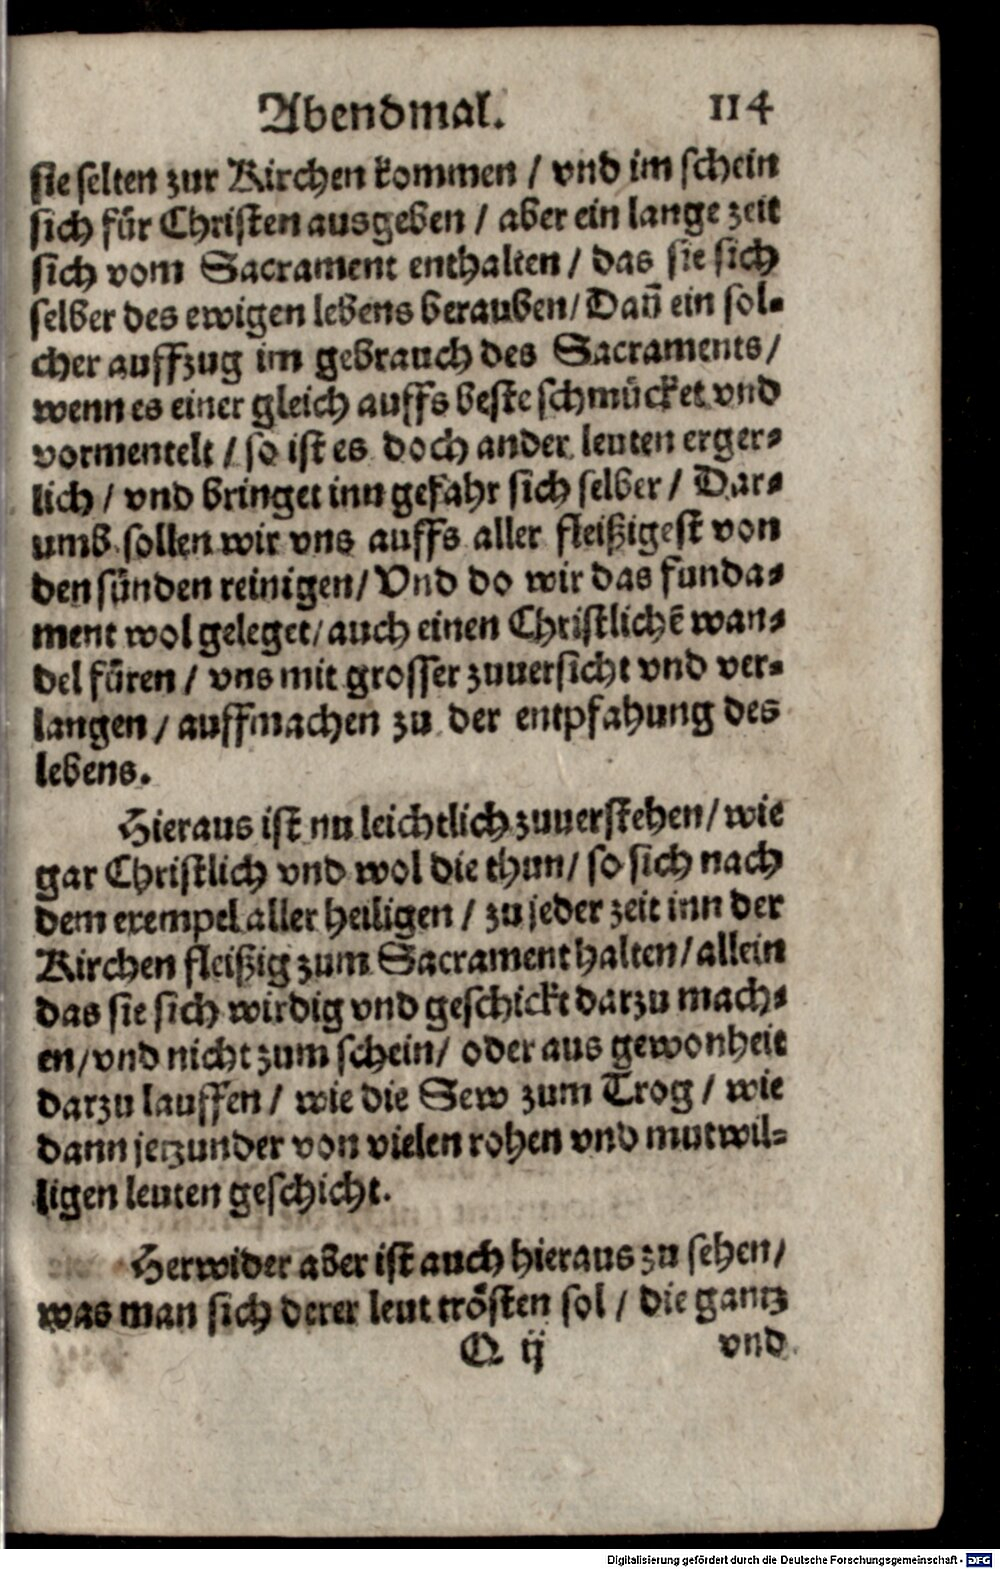 Abendmal. 114
sie selten zur Kirchen kommen / vnd im schein
sich für Christen ausgeben / aber ein lange zeit
sich vom Sacrament enthalten / das sie sich
selber des ewigen lebens berauben / Dañ ein sol-
cher auffzug im gebrauch des Sacraments /
wenn es einer gleich auffs beste schmücket vnd
vormentelt / so ist es doch ander leuten erger-
lich / vnd bringet inn gefahr sich selber / Dar-
umb sollen wir vns auffs aller fleißigest von
den sünden reinigen / Vnd do wir das funda-
ment wol geleget / auch einen Christlichẽ wan-
del füren / vns mit grosser zuuersicht vnd ver-
langen / auffmachen zu der entpfahung des
lebens.
Hieraus ist nu leichtlich zuuerstehen / wie
gar Christlich vnd wol die thun / so sich nach
dem exempel aller heiligen / zu jeder zeit inn der
Kirchen fleißig zum Sacrament halten / allein
das sie sich wirdig vnd geschickt darzu mach-
en / vnd nicht zum schein / oder aus gewonheit
darzu lauffen / wie die Sew zum Trog / wie
dann jetzunder von vielen rohen vnd mutwil-
ligen leuten geschicht.
Herwider aber ist auch hieraus zu sehen /
was man sich derer leut trösten sol / die gantz
Q ij vnd
Digitalisierung gefördert durch die Deutsche Forschungsgemeinschaft - DFG